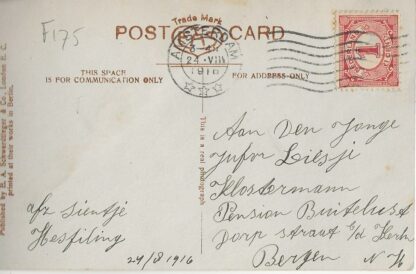 F175
Trade Mark
POST CARD
AMSTERDAM
24.VIII
1916
THIS SPACE
IS FOR COMMUNICATION ONLY
FOR ADDRESS ONLY
Published by E. A. Schwerdtfeger & Co. London E. C.
printed at their works in Berlin.
This is a real photograph
afz Sientje
Hesfiling
24/8 1916
Aan Den Jonge
Jufor Liesji
Klostermann
Pension Buitelust
Dorp straat t/d Kerk
Bergen N H